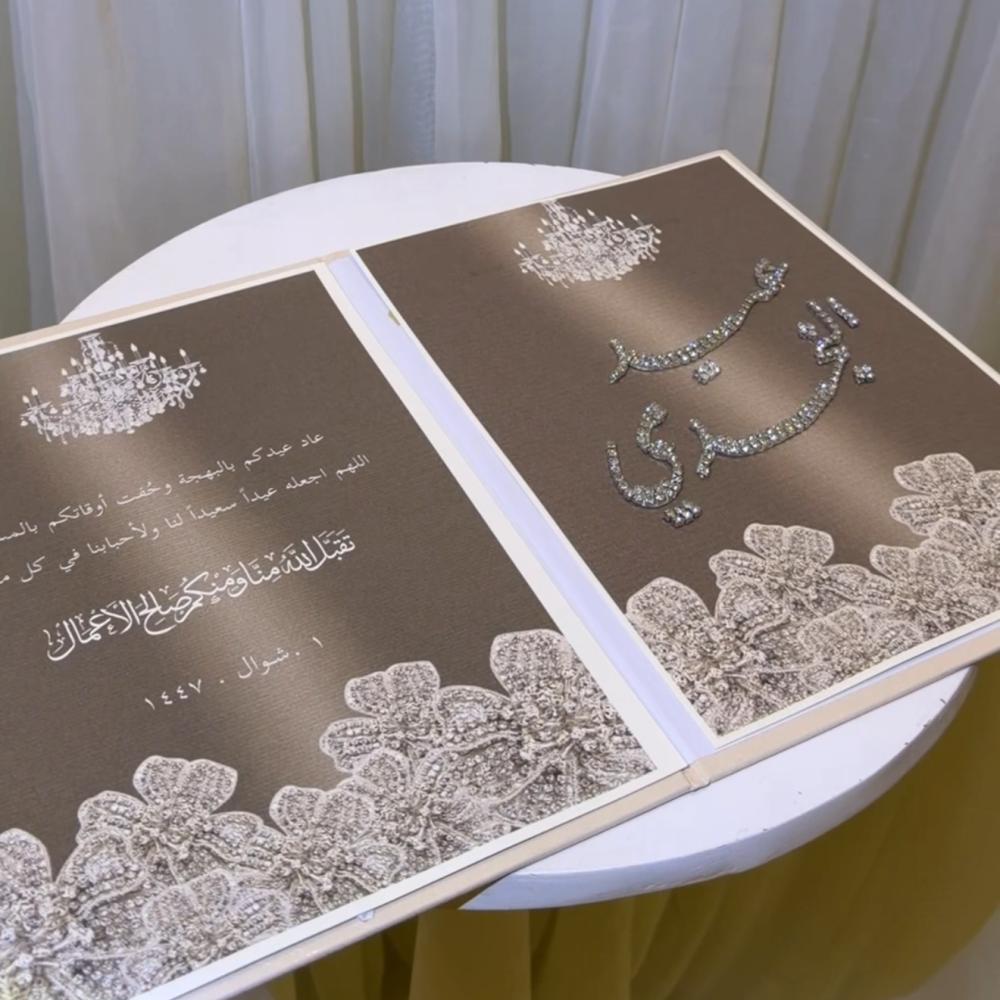 عاد عيدكم بالبهجة وحُفت أوقاتكم
اللهم اجعله عيداً سعيداً لنا ولأحبابنا في كل
تَقَبَّلَ اللَّه مِنَّا وَمِنْكُمْ صَالِحَ الْأَعْمَال
١ . شوال . ١٤٤٧